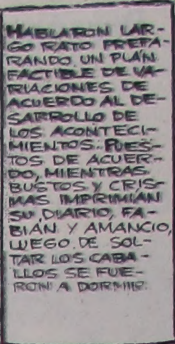 HABLARON LAR-
GO RATO PREPA-
RANDO UN PLAN
FACTIBLE DE VA-
RIACIONES DE
ACUERDO AL DE-
SARROLLO DE
LOS ACONTECI-
MIENTOS. PUES-
TOS DE ACUER-
DO, MIENTRAS
BUSTOS Y CRIS-
MAS IMPRIMIAN
SU DIARIO, FA-
BIÁN Y AMANCIO,
LUEGO DE SOL-
TAR LOS CABA-
LLOS SE FUE-
RON A DORMIR.